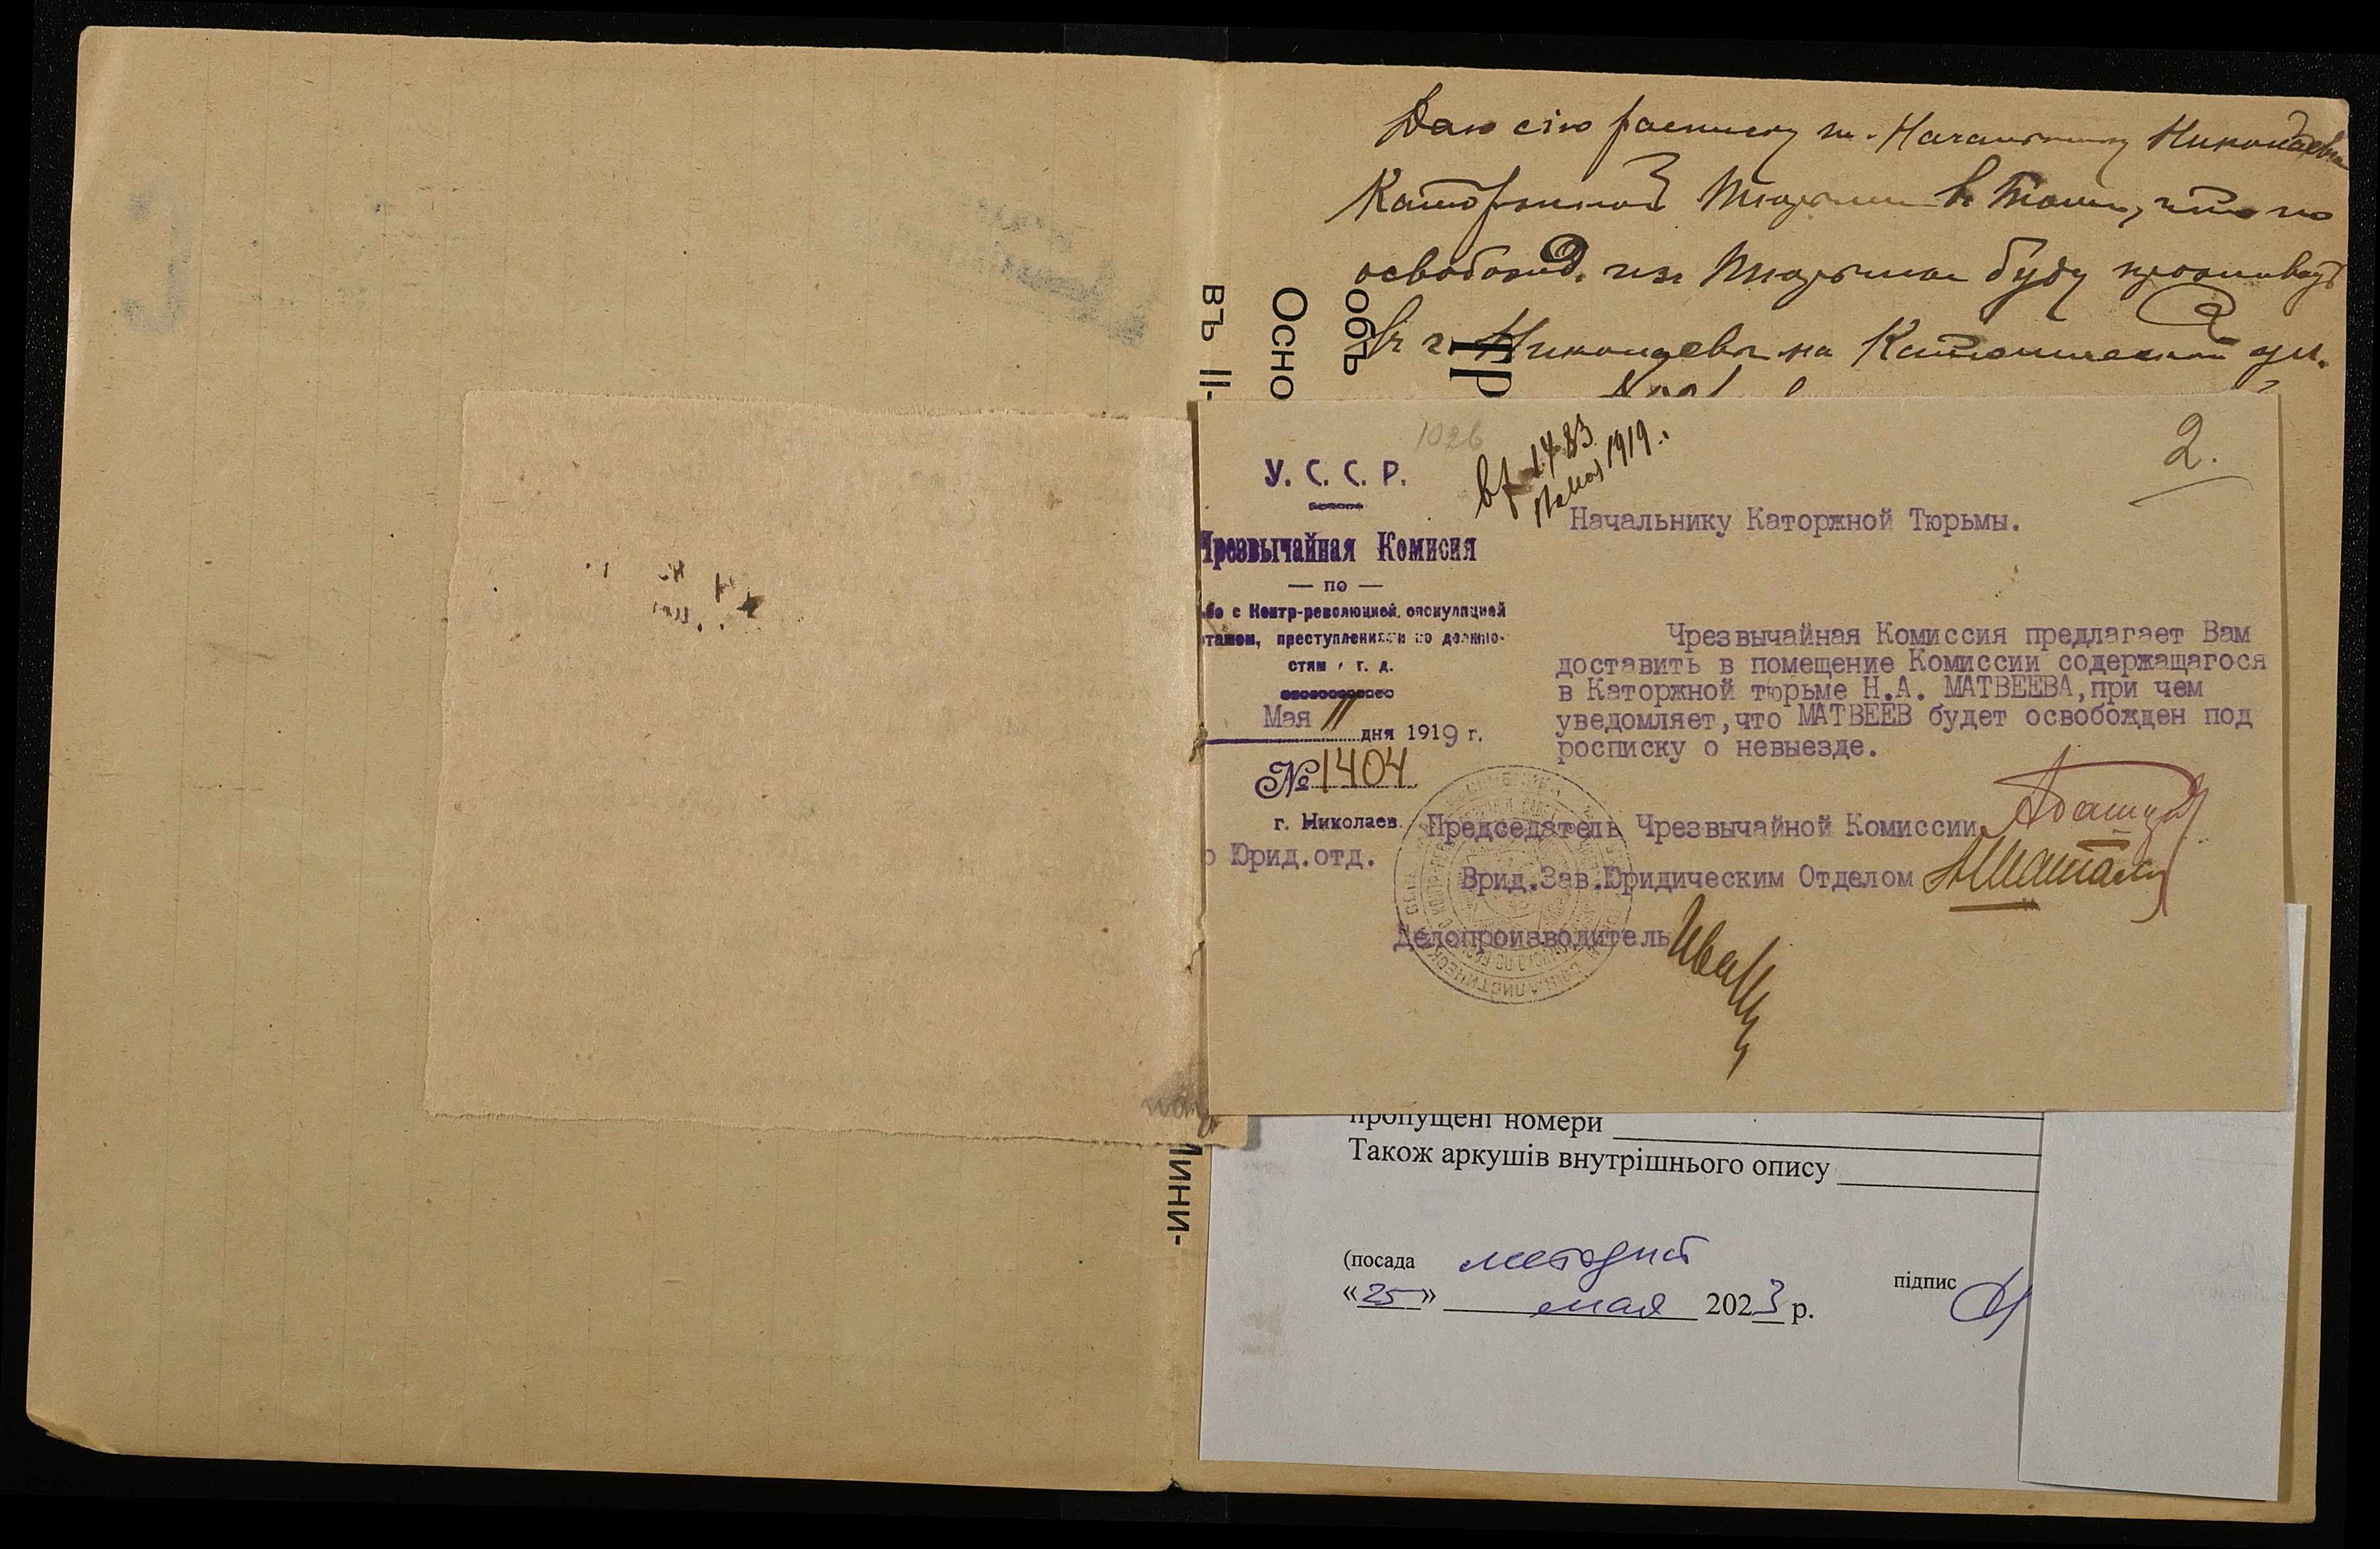 Даю сію расписку т. Начальнику Николаевск
Каторжной Тюрьмы в том, что по
освобожд. из Тюрьмы буду проживать
в г. Николаеве на Католической ул.
въ II-
Осно
объ
Пр
1026
вх 1483
мая 1919 г.
2.
У. С. С. Р.
Чрезвычайная Комисия
— по —
бе с Контр-революцией, спекуляцией
тажем, преступлениями по должно-
стям и т. д.
Мая 11 дня 1919 г.
№ 1404
г. Николаев.
о Юрид.отд.
Начальнику Каторжной Тюрьмы.
Чрезвычайная Комиссия предлагает Вам
доставить в помещение Комиссии содержащагося
в Каторжной тюрьме Н.А. МАТВЕЕВА,при чем
уведомляет,что МАТВЕЕВ будет освобожден под
росписку о невыезде.
Председатель Чрезвычайной Комиссии
Врид.Зав.Юридическим Отделом
Делопроизводитель
ини-
пропущені номери
Також аркушів внутрішнього опису
(посада методист
«25» мая 2023 р.
підпис